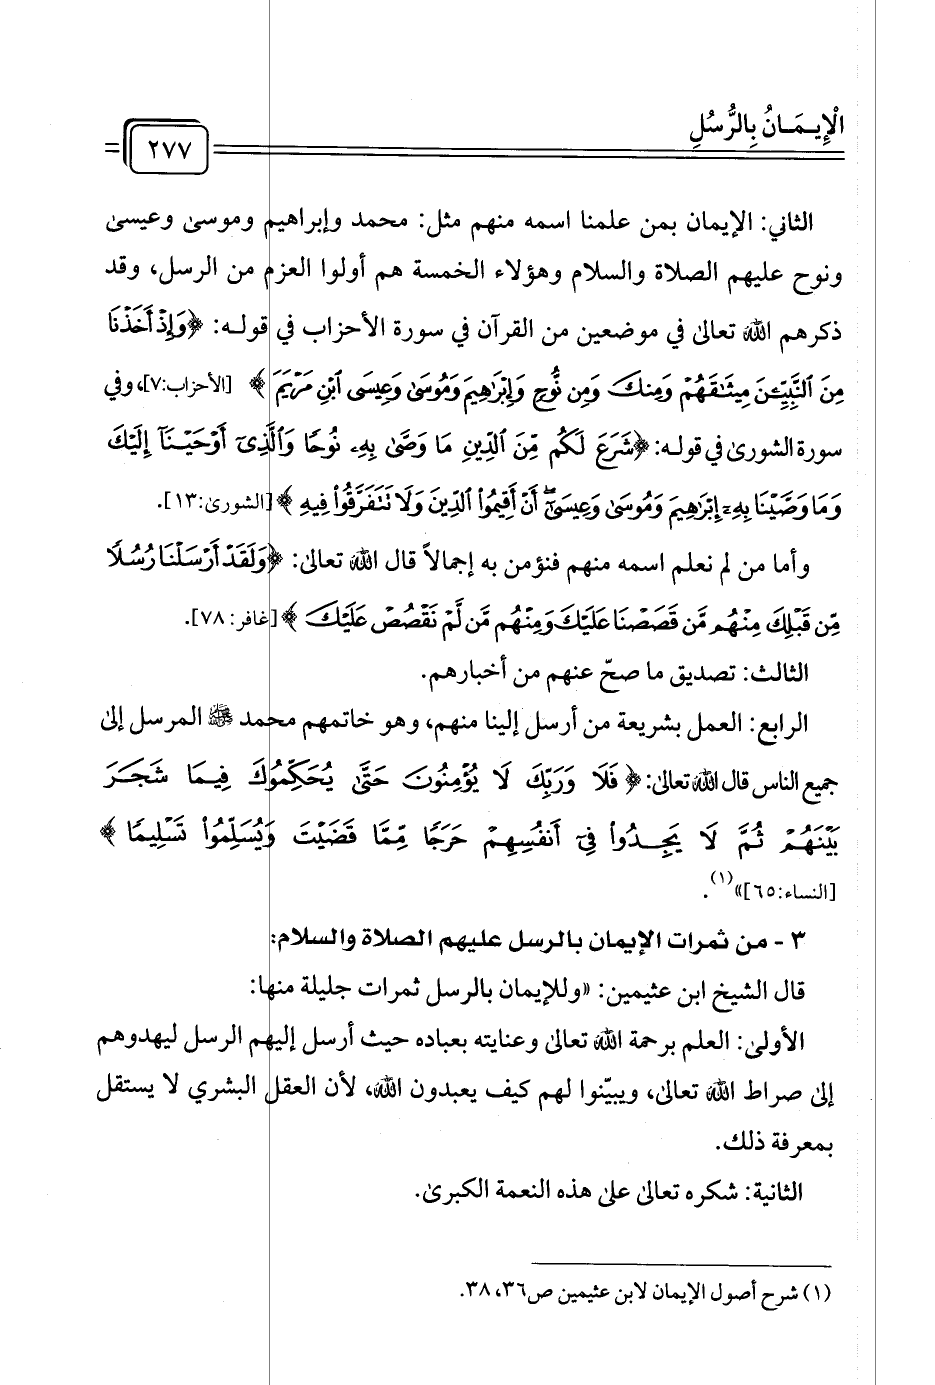 الْإِيـمَـانُ بِالرُّسُلِ
٢٧٧
الثاني: الإيمان بمن علمنا اسمه منهم مثل: محمد وإبراهيم وموسىٰ وعيسىٰ
ونوح عليهم الصلاة والسلام وهؤلاء الخمسة هم أولوا العزم من الرسل، وقد
ذكرهم الله تعالىٰ في موضعين من القرآن في سورة الأحزاب في قولـه: ﴿وَإِذْ أَخَذْنَا
مِنَ ٱلنَّبِيِّـۧنَ مِيثَـٰقَهُمْ وَمِنكَ وَمِن نُّوحٍ وَإِبْرَٰهِيمَ وَمُوسَىٰ وَعِيسَى ٱبْنِ مَرْيَمَ﴾ [الأحزاب:٧]، وفي
سورة الشورىٰ في قولـه: ﴿شَرَعَ لَكُم مِّنَ ٱلدِّينِ مَا وَصَّىٰ بِهِۦ نُوحًا وَٱلَّذِىٓ أَوْحَيْنَآ إِلَيْكَ
وَمَا وَصَّيْنَا بِهِۦٓ إِبْرَٰهِيمَ وَمُوسَىٰ وَعِيسَىٰٓ ۖ أَنْ أَقِيمُوا۟ ٱلدِّينَ وَلَا تَتَفَرَّقُوا۟ فِيهِ﴾ [الشورىٰ:١٣].
وأما من لم نعلم اسمه منهم فنؤمن به إجمالاً قال الله تعالىٰ: ﴿وَلَقَدْ أَرْسَلْنَا رُسُلًا
مِّن قَبْلِكَ مِنْهُم مَّن قَصَصْنَا عَلَيْكَ وَمِنْهُم مَّن لَّمْ نَقْصُصْ عَلَيْكَ﴾ [غافر: ٧٨].
الثالث: تصديق ما صحّ عنهم من أخبارهم.
الرابع: العمل بشريعة من أرسل إلينا منهم، وهو خاتمهم محمد ﷺ المرسل إلىٰ
جميع الناس قال الله تعالىٰ: ﴿فَلَا وَرَبِّكَ لَا يُؤْمِنُونَ حَتَّىٰ يُحَكِّمُوكَ فِيمَا شَجَرَ
بَيْنَهُمْ ثُمَّ لَا يَجِـدُوا۟ فِىٓ أَنفُسِهِمْ حَرَجًا مِّمَّا قَضَيْتَ وَيُسَلِّمُوا۟ تَسْلِيمًا﴾
[النساء:٦٥]»(١).
٣ - من ثمرات الإيمان بالرسل عليهم الصلاة والسلام:
قال الشيخ ابن عثيمين: «وللإيمان بالرسل ثمرات جليلة منها:
الأولىٰ: العلم برحمة الله تعالىٰ وعنايته بعباده حيث أرسل إليهم الرسل ليهدوهم
إلىٰ صراط الله تعالىٰ، ويبيّنوا لهم كيف يعبدون الله، لأن العقل البشري لا يستقل
بمعرفة ذلك.
الثانية: شكره تعالىٰ علىٰ هذه النعمة الكبرىٰ.
(١) شرح أصول الإيمان لابن عثيمين ص٣٦، ٣٨.